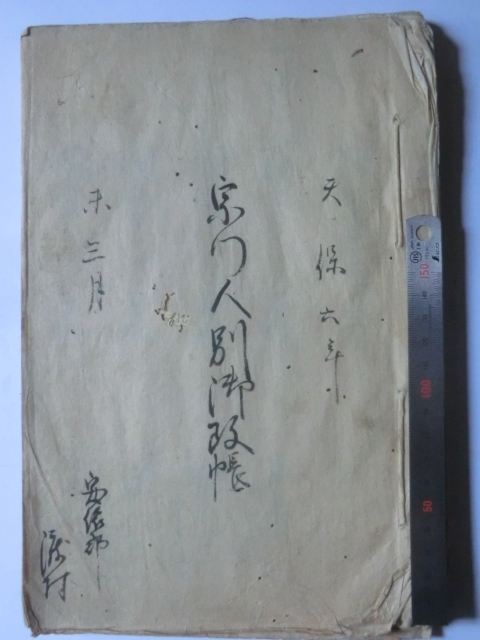 天保六年
宗門人別御改帳
未三月
安倍郡
村
150
100
50